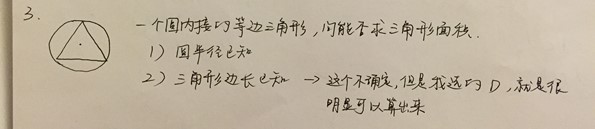 3.
一个圆内接的等边三角形，问能否求三角形面积.
1) 圆半径已知
2) 三角形边长已知 → 这个不确定，但是我选的 D，就是很
明显可以算出来